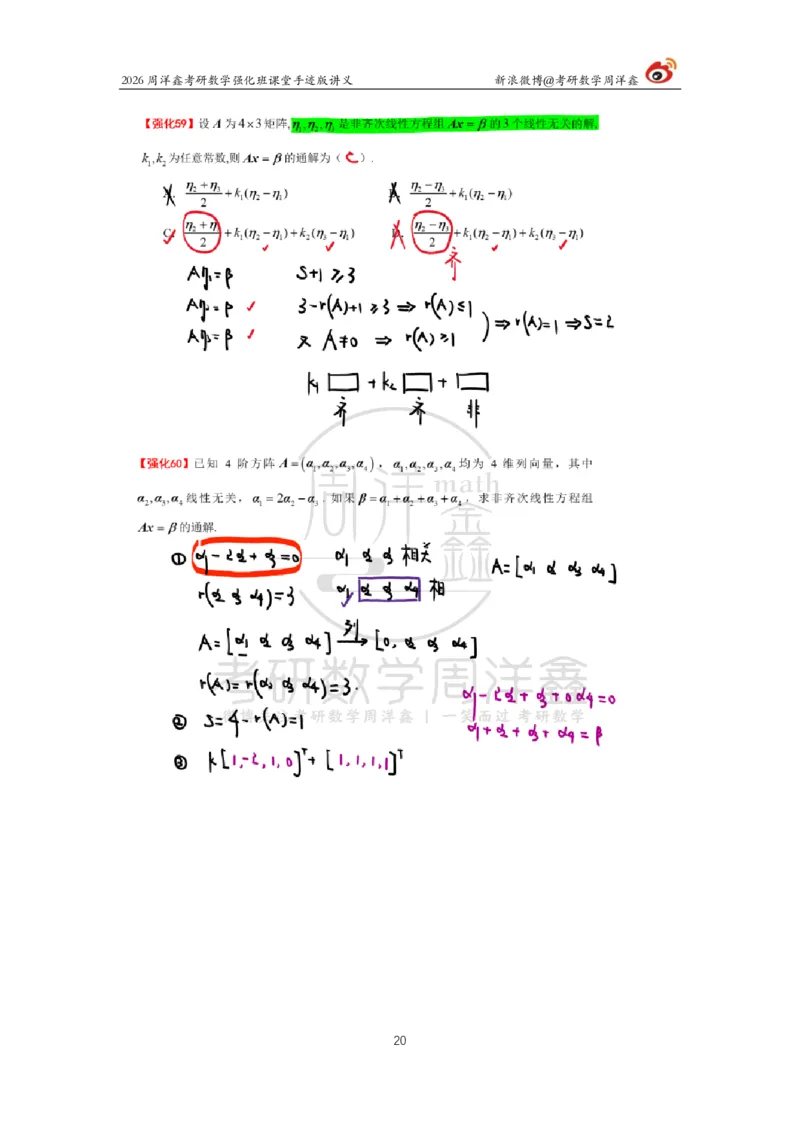 2026周洋鑫考研数学强化班课堂手迹版讲义 新浪微博@考研数学周洋鑫
【强化59】设 A 为4×3矩阵,η₁,η₂,η₃是非齐次线性方程组 Ax = β 的3个线性无关的解,
k₁,k₂为任意常数,则Ax = β的通解为( C ).
(η₂+η₃)/2 + k₁(η₂−η₁)
(η₂−η₃)/2 + k₁(η₂−η₁)
C. (η₂+η₃)/2 + k₁(η₂−η₁)+k₂(η₃−η₁)
(η₂−η₃)/2 + k₁(η₂−η₁)+k₂(η₃−η₁)
齐
Aη₁=β S+1≥3
Aη₂=β ✓ 3−r(A)+1≥3 ⇒ r(A)≤1
Aη₃=β ✓ 又 A≠0 ⇒ r(A)≥1
⇒r(A)=1 ⇒S=2
k₁ □ + k₂ □ + □
齐 齐 非
【强化60】已知 4 阶方阵 A=(α₁,α₂,α₃,α₄), α₁,α₂,α₃,α₄均为 4 维列向量, 其中
α₂,α₃,α₄线性无关, α₁=2α₂−α₃. 如果β=α₁+α₂+α₃+α₄, 求非齐次线性方程组
Ax=β的通解.
① α₁−2α₂+α₃=0 α₁ α₂ α₃ 相关 A=[α₁ α₂ α₃ α₄]
r(α₂ α₃ α₄)=3 α₁ α₂ α₃ α₄ 相
A=[α₁ α₂ α₃ α₄] 列→ [0, α₂ α₃ α₄]
r(A)=r(α₂ α₃ α₄)=3.
α₁−2α₂+α₃+0α₄=0
② S=4−r(A)=1
α₁+α₂+α₃+α₄=β
③ k[1,-2,1,0]ᵀ+[1,1,1,1]ᵀ
周洋鑫
math
考研数学周洋鑫
考研数学周洋鑫 | 一笑而过 考研数学
20